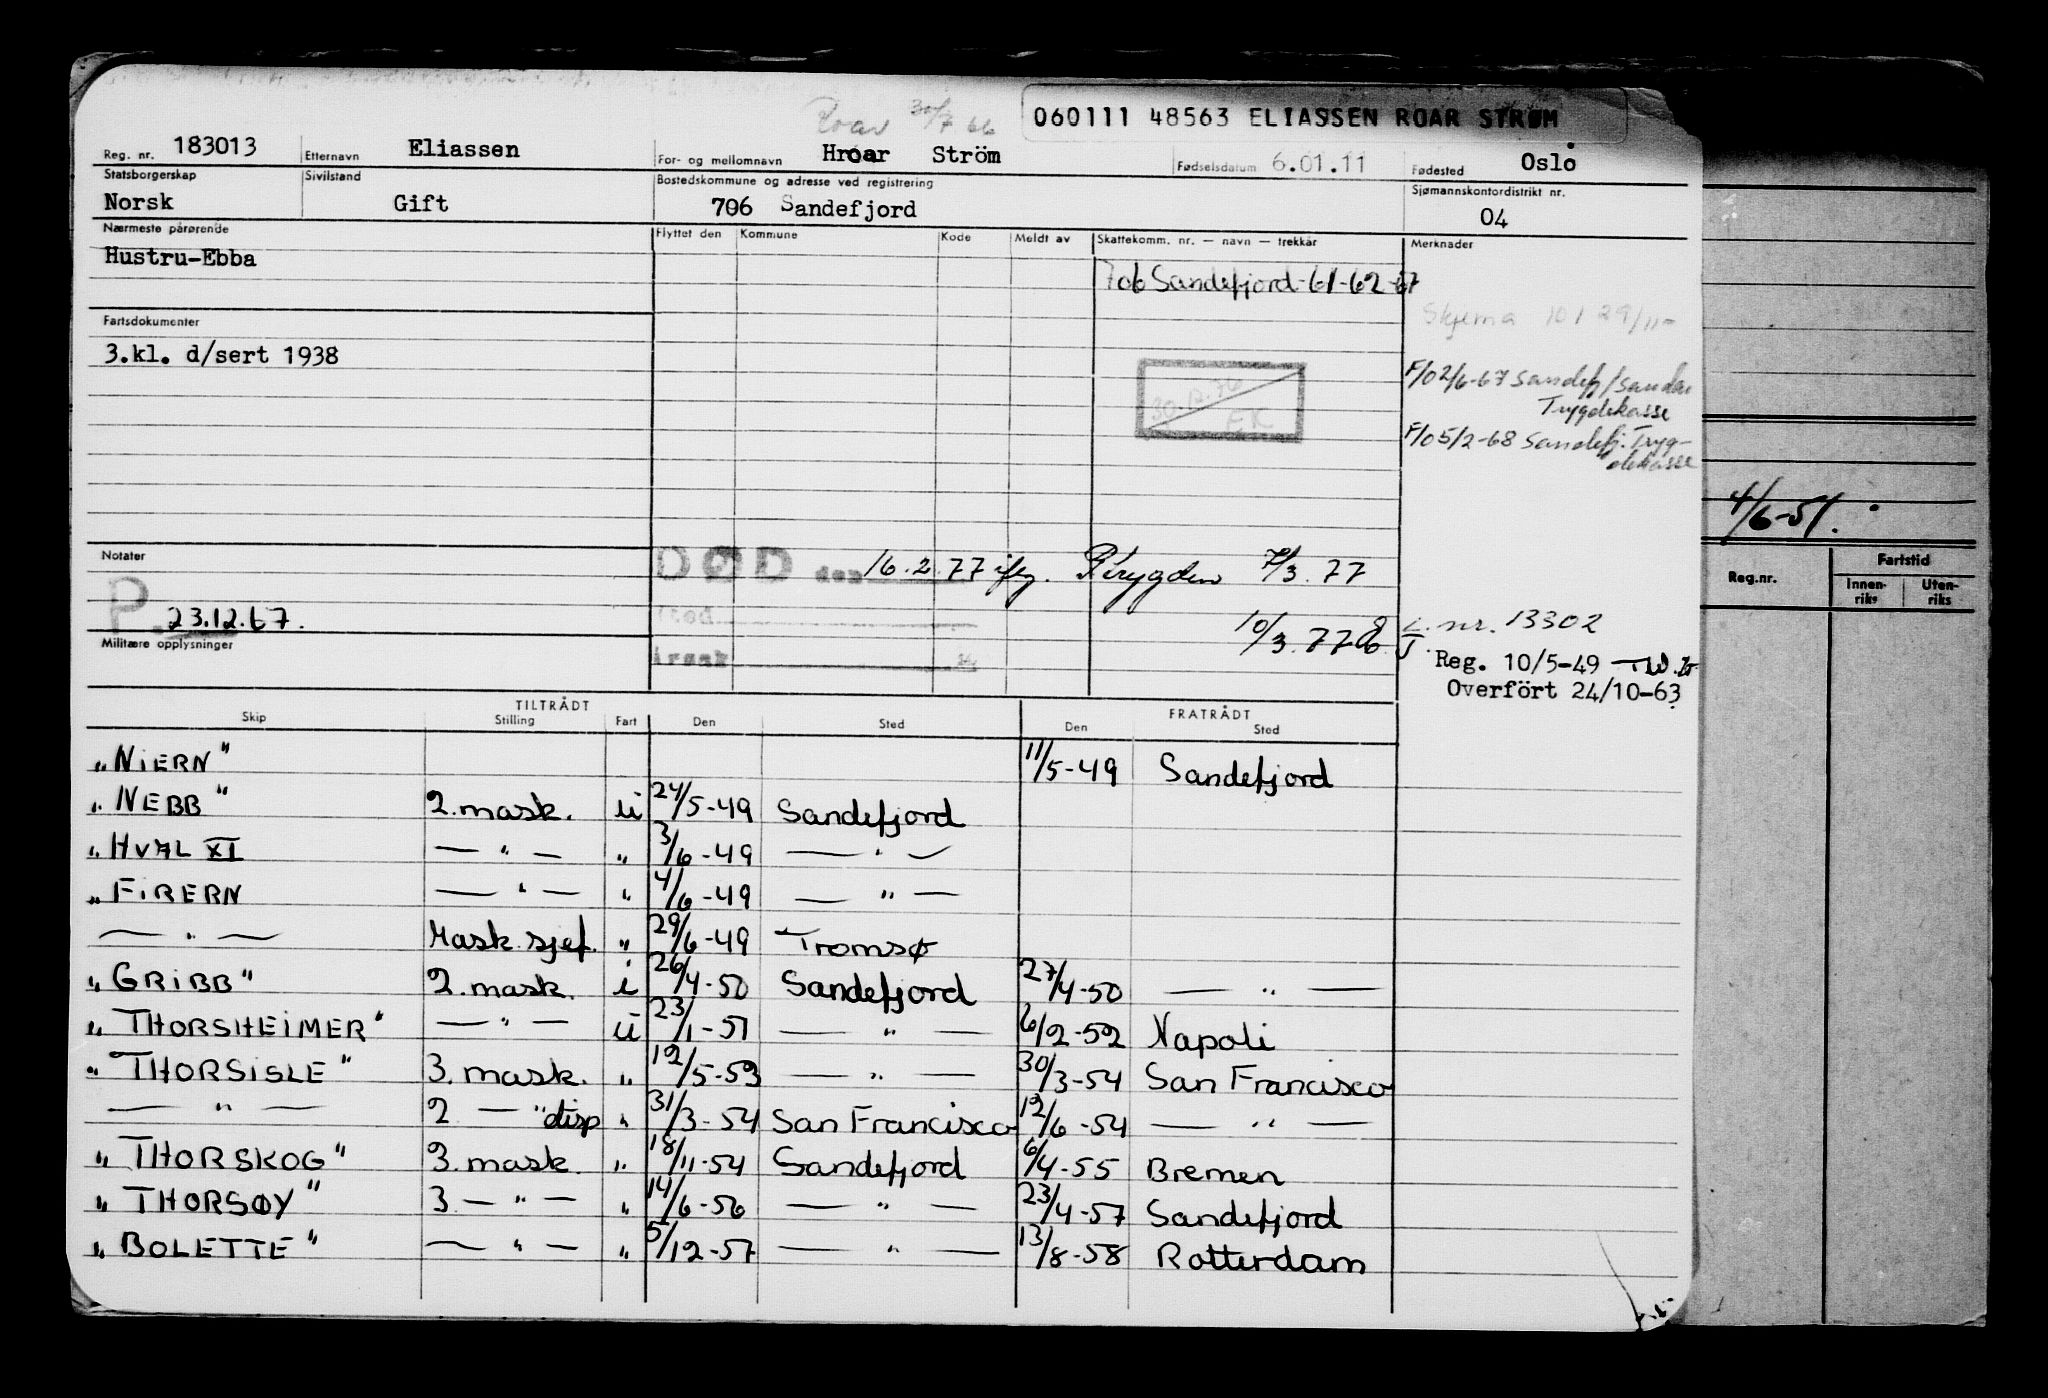 Roar 30/7 66
060111 48563 ELIASSEN ROAR STRØM
Reg. nr. 183013 Etternavn Eliassen For- og mellomnavn Hroar Ström Fødselsdatum 6.01.11 Fødested Oslo
Statsborgerskap Sivilstand Bostedskommune og adresse ved registrering Sjømannskontordistrikt nr.
Norsk Gift 706 Sandefjord 04
Nærmeste pårørende Flyttet den Kommune Kode Meldt av Skattekomm. nr. — navn — trekkår Merknader
Hustru-Ebba
706 Sandefjord-61-62-67
Skjema 101 29/11-
Fartsdokumenter
3.kl. d/sert 1938
F/o 2/6-67 Sandefj/Sandar
Trygdekasse
30.12.76
EK
F/o 5/2-68 Sandefj. Tryg-
dekasse
4/6-51.
Notater
DØD den 16.2.77 ifg. R.trygden 7/3.77
P. 23.12.67.
sted
10/3.77
L. nr. 13302
Militære opplysninger
årsak
Reg. 10/5-49
Overfört 24/10-63
Reg.nr. Fartstid
Innen-riks Uten-riks
TILTRÅDT FRATRÅDT
Skip Stilling Fart Den Sted Den Sted
"NIERN" 11/5-49 Sandefjord
"NEBB" 2.mask. u 24/5-49 Sandefjord
"HVAL XI — " — " 3/6-49 — " —
"FIRERN — " — " 4/6-49 — " —
— " — Mask.sjef. " 29/6-49 Tromsø
"GRIBB" 2.mask. i 26/4-50 Sandefjord 27/4-50 — " —
"THORSHEIMER" — " — u 23/1-51 — " — 6/2-52 Napoli
"THORSISLE" 3.mask. " 12/5-53 — " — 30/3-54 San Francisco
— " — 2 — " disp " 31/3-54 San Francisco 12/6-54 — " —
"THORSKOG" 3.mask. " 18/11-54 Sandefjord 6/4-55 Bremen
"THORSØY" 3 — " — " 14/6-56 — " — 23/4-57 Sandefjord
"BOLETTE" — " — " 5/12-57 — " — 13/8-58 Rotterdam